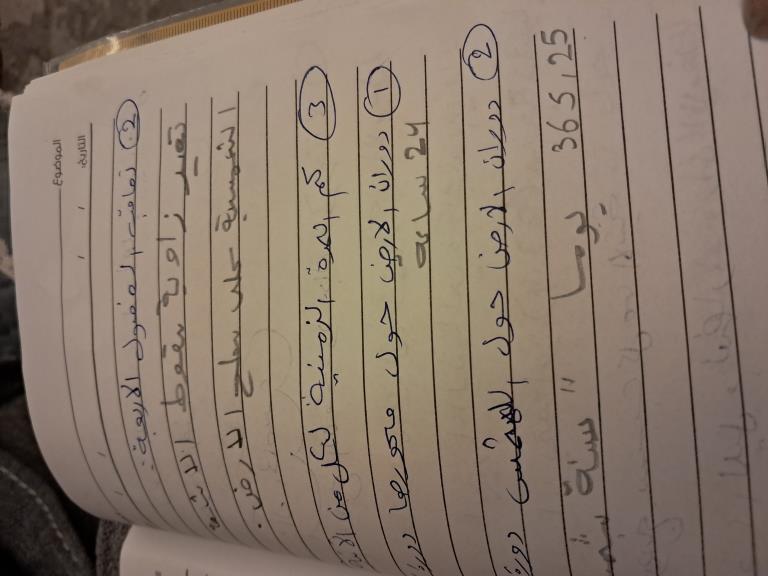 الموضوع
التاريخ: / /
2. تعاقب الفصول الأربعة.
تغير زاوية سقوط
الشمسية على سطح الارض.
3 كم المدة الزمنية لكل من
1 دوران الارض حول محورها
24 ساعة
2 دوران الارض حول الشمس دورة
365,25 يوما " سنة